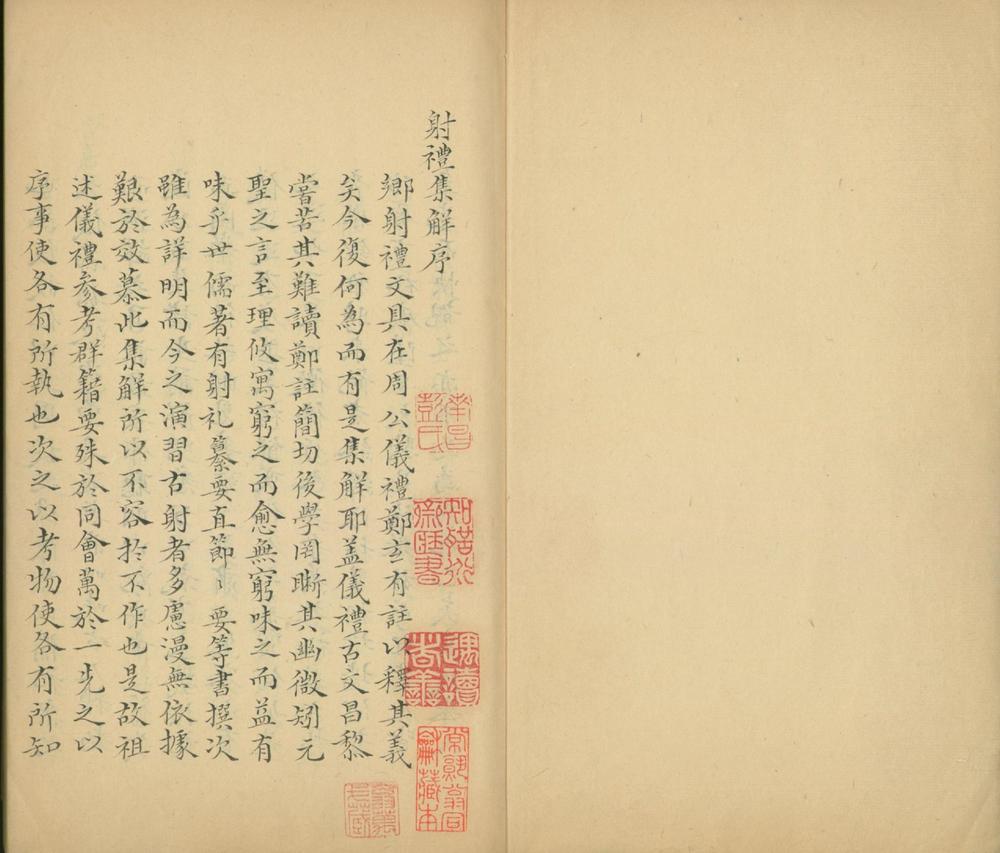 射禮集解序
鄉射禮文具在周公儀禮鄭玄有註以釋其義
矣今復何為而有是集解耶盖儀禮古文昌黎
嘗苦其難讀鄭註簡切後學罔晰其幽微矧元
聖之言至理攸寓窮之而愈無窮味之而益有
味乎世儒著有射礼纂要直節〻要等書撰次
雖為詳明而今之演習古射者多慮漫無依據
艱於效慕此集解所以不容於不作也是故祖
述儀禮參考群籍要殊於同會萬於一先之以
序事使各有所執也次之以考物使各有所知
南昌彭氏
知聖道齋藏書
遇讀者善